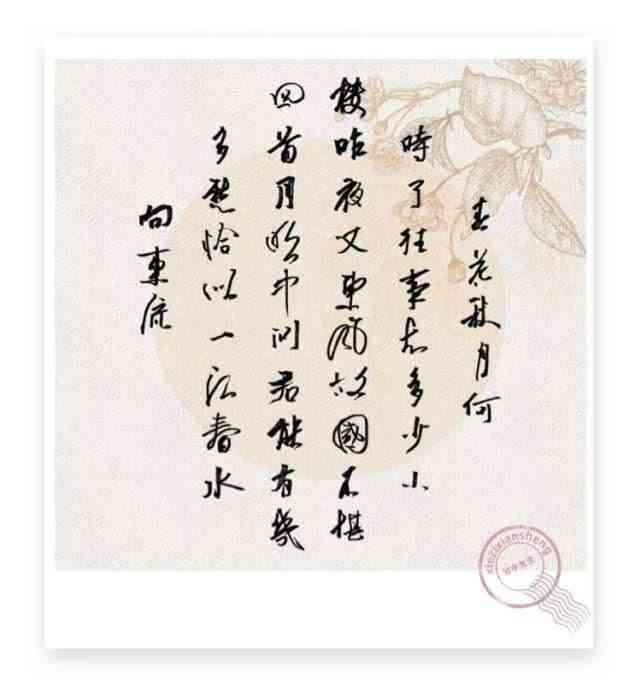 春花秋月何
時了往事知多少小
樓昨夜又東風故國不堪
回首月明中问君能有幾
多愁恰似一江春水
向東流
xiezixiansheng